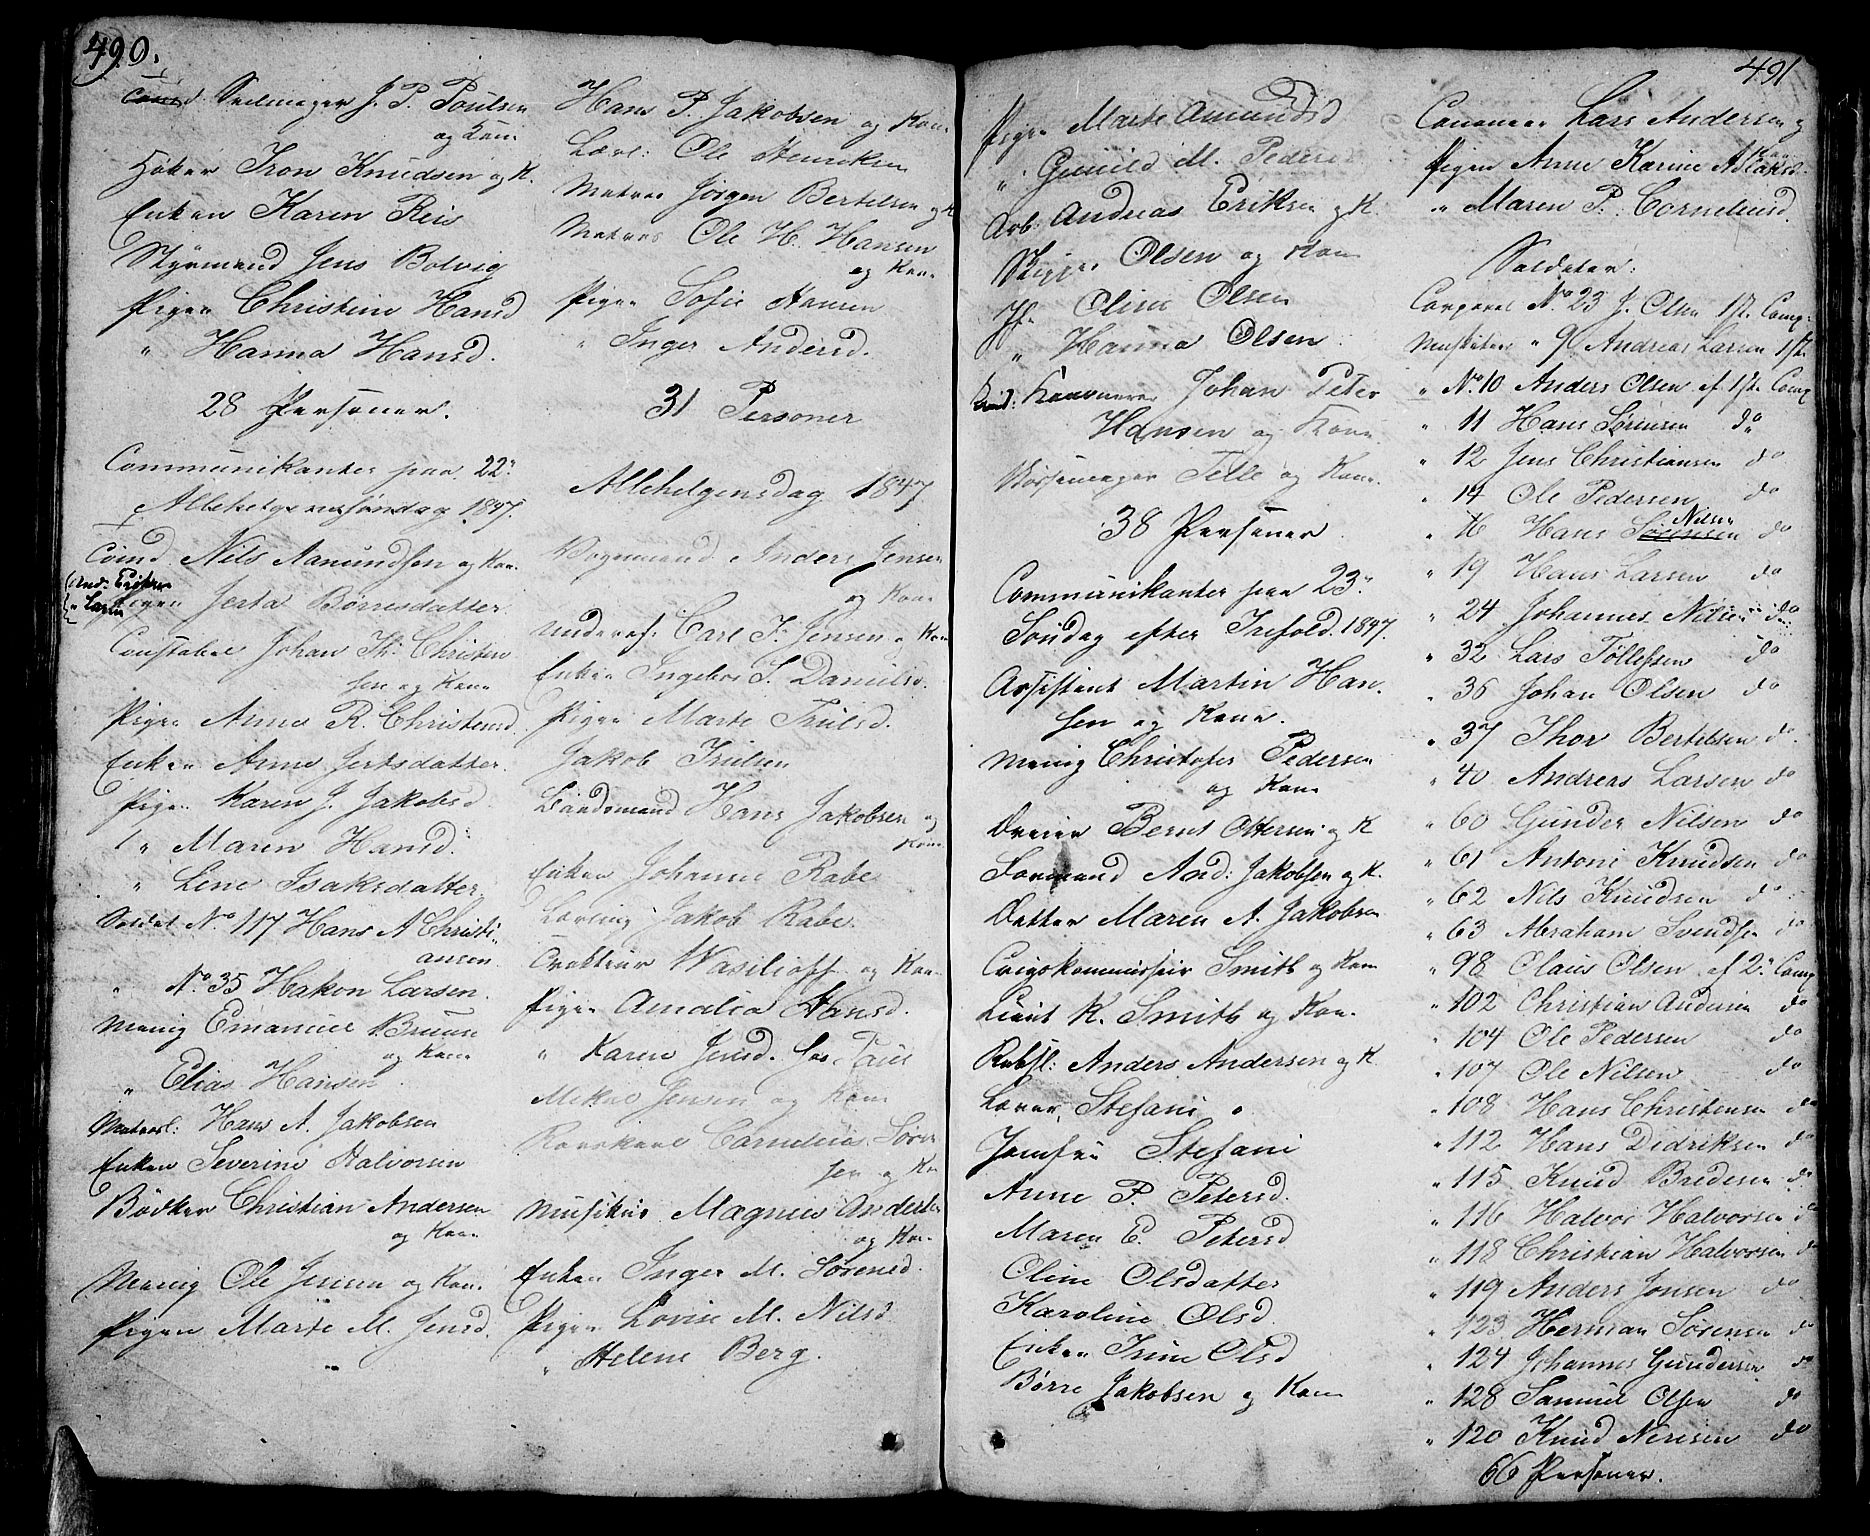 490.
Comd. Seilmager J. P. Poulsen
og Kone
Høker Iron Knudsen og K.
Enken Karen Reis
Styrmand Jens Bolvig
Pigen Christine Hansd
" Hanna Hansd.
28 Personer.
Communikanter paa 22de
Allehelgenssøndag 1847.
Comd. Nils Aamundsen og Kone.
And. Eriksen
Pigen Jerta Børresdatter.
" Larsen
Constabel Johan Th. Christen
sen og Kone
Pigen Anne R. Christensd
Enken Anne Jertsdatter.
Pigen Karen J. Jakobsd.
" Maren Hansd.
" Lene Isaksdatter.
Soldat No. 117 Hans A Christi-
ansen
" No. 35 Hakon Larsen.
Menig Emanuel Bruun
og Kone
" Elias Hansen
Matersl: Hans A. Jakobsen
Enken Severine Halvorsen
Bødker Christian Andersen
og Kone
Menig Ole Jensen og Kone.
Pigen Marte M. Jensd.
Hans P. Jakobsen og Kone
Lærl: Ole Henriksen
Matros Jørgen Bertelsen og K
Matros Ole H. Hansen
og Kone
Pigen Sofie Hansen
" Inger Andersd.
31 Personer
Allehelgensdag 1847
Vognmand Anders Jensen
og Kone
Underof: Carl J. Jensen og Kone
Enken Ingebor S. Danielsd.
Pigen Marte Truls​d.
Jakob Trulsen
Baadsmand Hans Jakobsen og
Kone
Enken Johanne Rabe
Lærling Jakob Rabe.
Wasilioff og Kone
Pigen Amalia Hansd.
" Karen Jensd. hos Paul
Mikal Jensen og Kone
Cornelius Søren
sen og Kone
Musikus Magnus Andersen
og Kone.
Enken Inger M. Sørensd.
Pigen Lovise M. Nilsd
" Helene Berg.
491
Pigen Marte Amundsd
" Gunild M. Peders
Arb: Andreas Eriksen og K.
Skipper Olsen og Kone
Jfr. Oline Olsen
" Hanna Olsen.
Kanoneer Johan Peter
Hansen og Kone.
Børsemager Telle og Kone.
38 Personer
Communikanter paa 23de
Søndag efter Trefold. 1847.
Assistent Martin Han-
sen og Kone.
Menig Christofer Pedersen
og Kone
Dreier Bernt Ottersen og K
Formand And: Jakobsen og K.
Datter Maren A. Jakobsen
Krigskommissær Smith og Kone
Lieut K. Smith og Kone.
Rebsl: Anders Andersen og K.
Lærer Stefani
Jomfru Stefani
Anne P. Petersd.
Maren E. Petersd
Oline Olsdatter
Karoline Olsd.
Enken Trine Olsd
Børre Jakobsen og Kone
Canoneer Lars Andersen og
Kone
Pigen Anne Karine A Olaksd.
" Maren P. Corneliusd.
Soldater:
Corporal No. 23 J. Olsen 1st. Comp:
Musketeer " 9 Andreas Larsen 1st.
" No. 10 Anders Olsen af 1st. Comp
" 11 Hans Sørensen do
" 12 Jens Christiansen do
" 14 Ole Pedersen do
Nilsen
" 16 Hans Sørensen do
" 19 Hans Larsen do
" 24 Johannes Nilsen do
" 32 Lars Tøllefsen do
" 36 Johan Olsen do
" 37 Thor Bertelsen do
" 40 Andreas Larsen do
" 60 Gunder Nilsen do
" 61 Antoni Knudsen do
" 62 Nils Knudsen do
" 63 Abraham Svendsen do
" 98 Claus Olsen af 2den Comp
" 102 Christian Andersen do
" 104 Ole Pedersen do
" 107 Ole Nilsen do
" 108 Hans Christensen do
" 112 Hans Didriksen do
" 115 Knud Bredesen do
" 116 Halvor Halvorsen do
" 118 Christian Halvorsen do
" 119 Anders Jonsen do
" 123 Herman Sørensen do
" 124 Johannes Gundersen do
" 128 Samuel Olsen do
" 120 Knud Nerisen do
66 Personer.